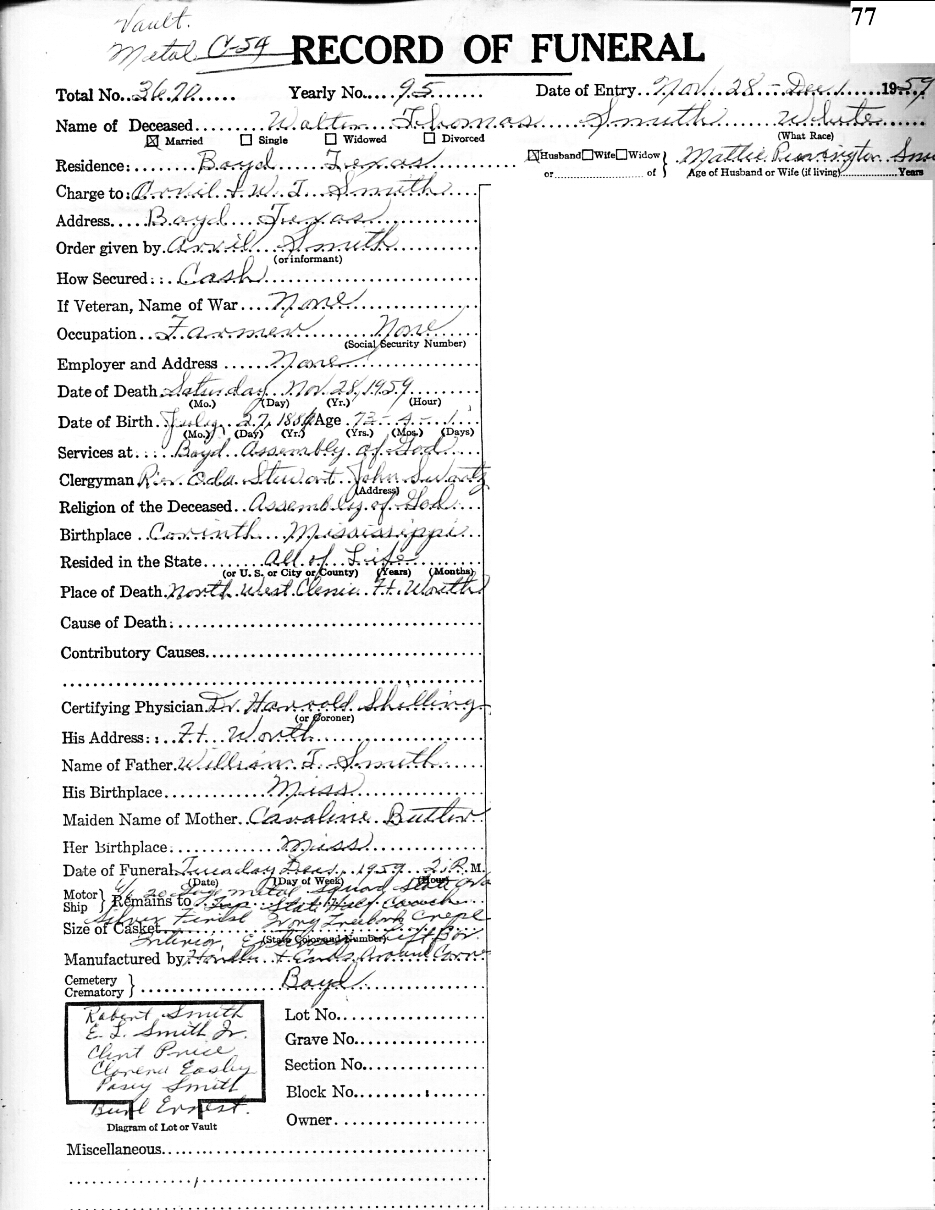 77
Vault.
Metal C-54
RECORD OF FUNERAL
Total No. 3670 Yearly No. 95 Date of Entry Nov. 28 - Dec 1 1959
Name of Deceased Walter Thomas Smith White
(What Race)
☒ Married ☐ Single ☐ Widowed ☐ Divorced
Residence: Boyd Texas ☒Husband ☐Wife ☐Widow or of } Mattie Smi
Age of Husband or Wife (if living) Years
Charge to: Arvil & W. T. Smith
Address Boyd Texas
Order given by Arvil Smith
(or informant)
How Secured: Cash
If Veteran, Name of War None
Occupation Farmer None
(Social Security Number)
Employer and Address None
Date of Death Saturday Nov. 28, 1959
(Mo.) (Day) (Yr.) (Hour)
Date of Birth July 27, 1886 Age 73-4-1
(Mo.) (Day) (Yr.) (Yrs.) (Mos.) (Days)
Services at: Boyd Assembly of God
Clergyman Rev. Odd Stewart John Swartz
(Address)
Religion of the Deceased Assembly of God
Birthplace Corinth Mississippi
Resided in the State All of Life
(or U. S. or City or County) (Years) (Months)
Place of Death North West Clinic Ft. Worth
Cause of Death:
Contributory Causes
Certifying Physician Dr. Harrold Shilling
(or Coroner)
His Address: Ft. Worth
Name of Father William T. Smith
His Birthplace Miss
Maiden Name of Mother Caroline Butler
Her Birthplace: Miss
Date of Funeral Tuesday Dec 1, 1959 2 P. M.
(Date) (Day of Week) (Hour)
Motor Ship } Remains to
6/6 20 Gage metal Square
Size of Casket Silver Crepe
(State Color and Number)
Interior
Manufactured by
Cemetery Crematory } Boyd
Robert Smith
E. L. Smith Jr.
Clint Price
Easley
Smith
Burl Ernest.
Diagram of Lot or Vault
Lot No.
Grave No.
Section No.
Block No.
Owner
Miscellaneous